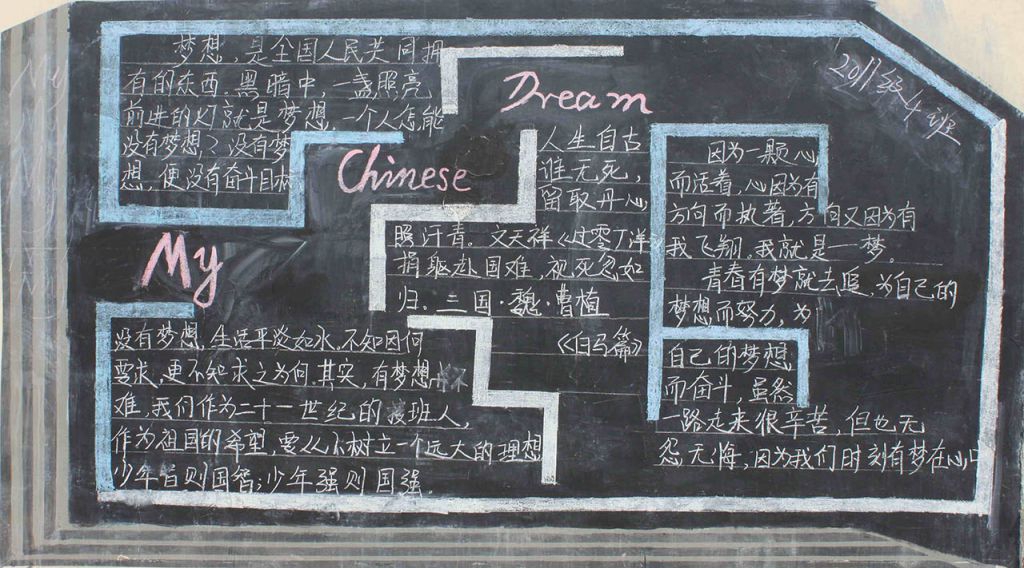 梦想,是全国人民共同拥
有的东西.黑暗中,一盏照亮
前进的灯就是梦想.一个人怎能
没有梦想?没有梦
想,便没有奋斗目标
My
Chinese
Dream
2011级4班
人生自古
谁无死,
留取丹心
照汗青。文天祥《过零丁洋》
捐躯赴国难,视死忽如
归.三国·魏·曹植
《白马篇》
没有梦想.生活平淡如水,不知因何
要求,更不知求之为何.其实,有梦想
难,我们作为二十一世纪的接班人,
作为祖国的希望,要从小树立一个远大的理想
少年智则国智;少年强则国强.
因为一颗心,
而活着,心因为有
方向而执著,方向又因为有
我飞翔.我就是一梦。
青春有梦就去追,为自己的
梦想而努力,为
自己的梦想
而奋斗,虽然
一路走来很辛苦,但也无
怨无悔,因为我们时刻有梦在心中